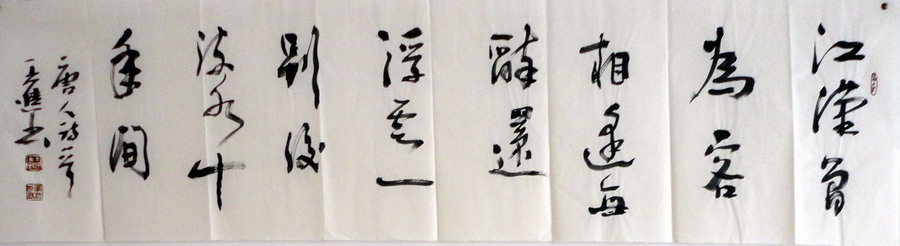 江漢曾
為客
相逢每
醉還
浮云一
别後
流水十
年間
唐人詩一首
王
书